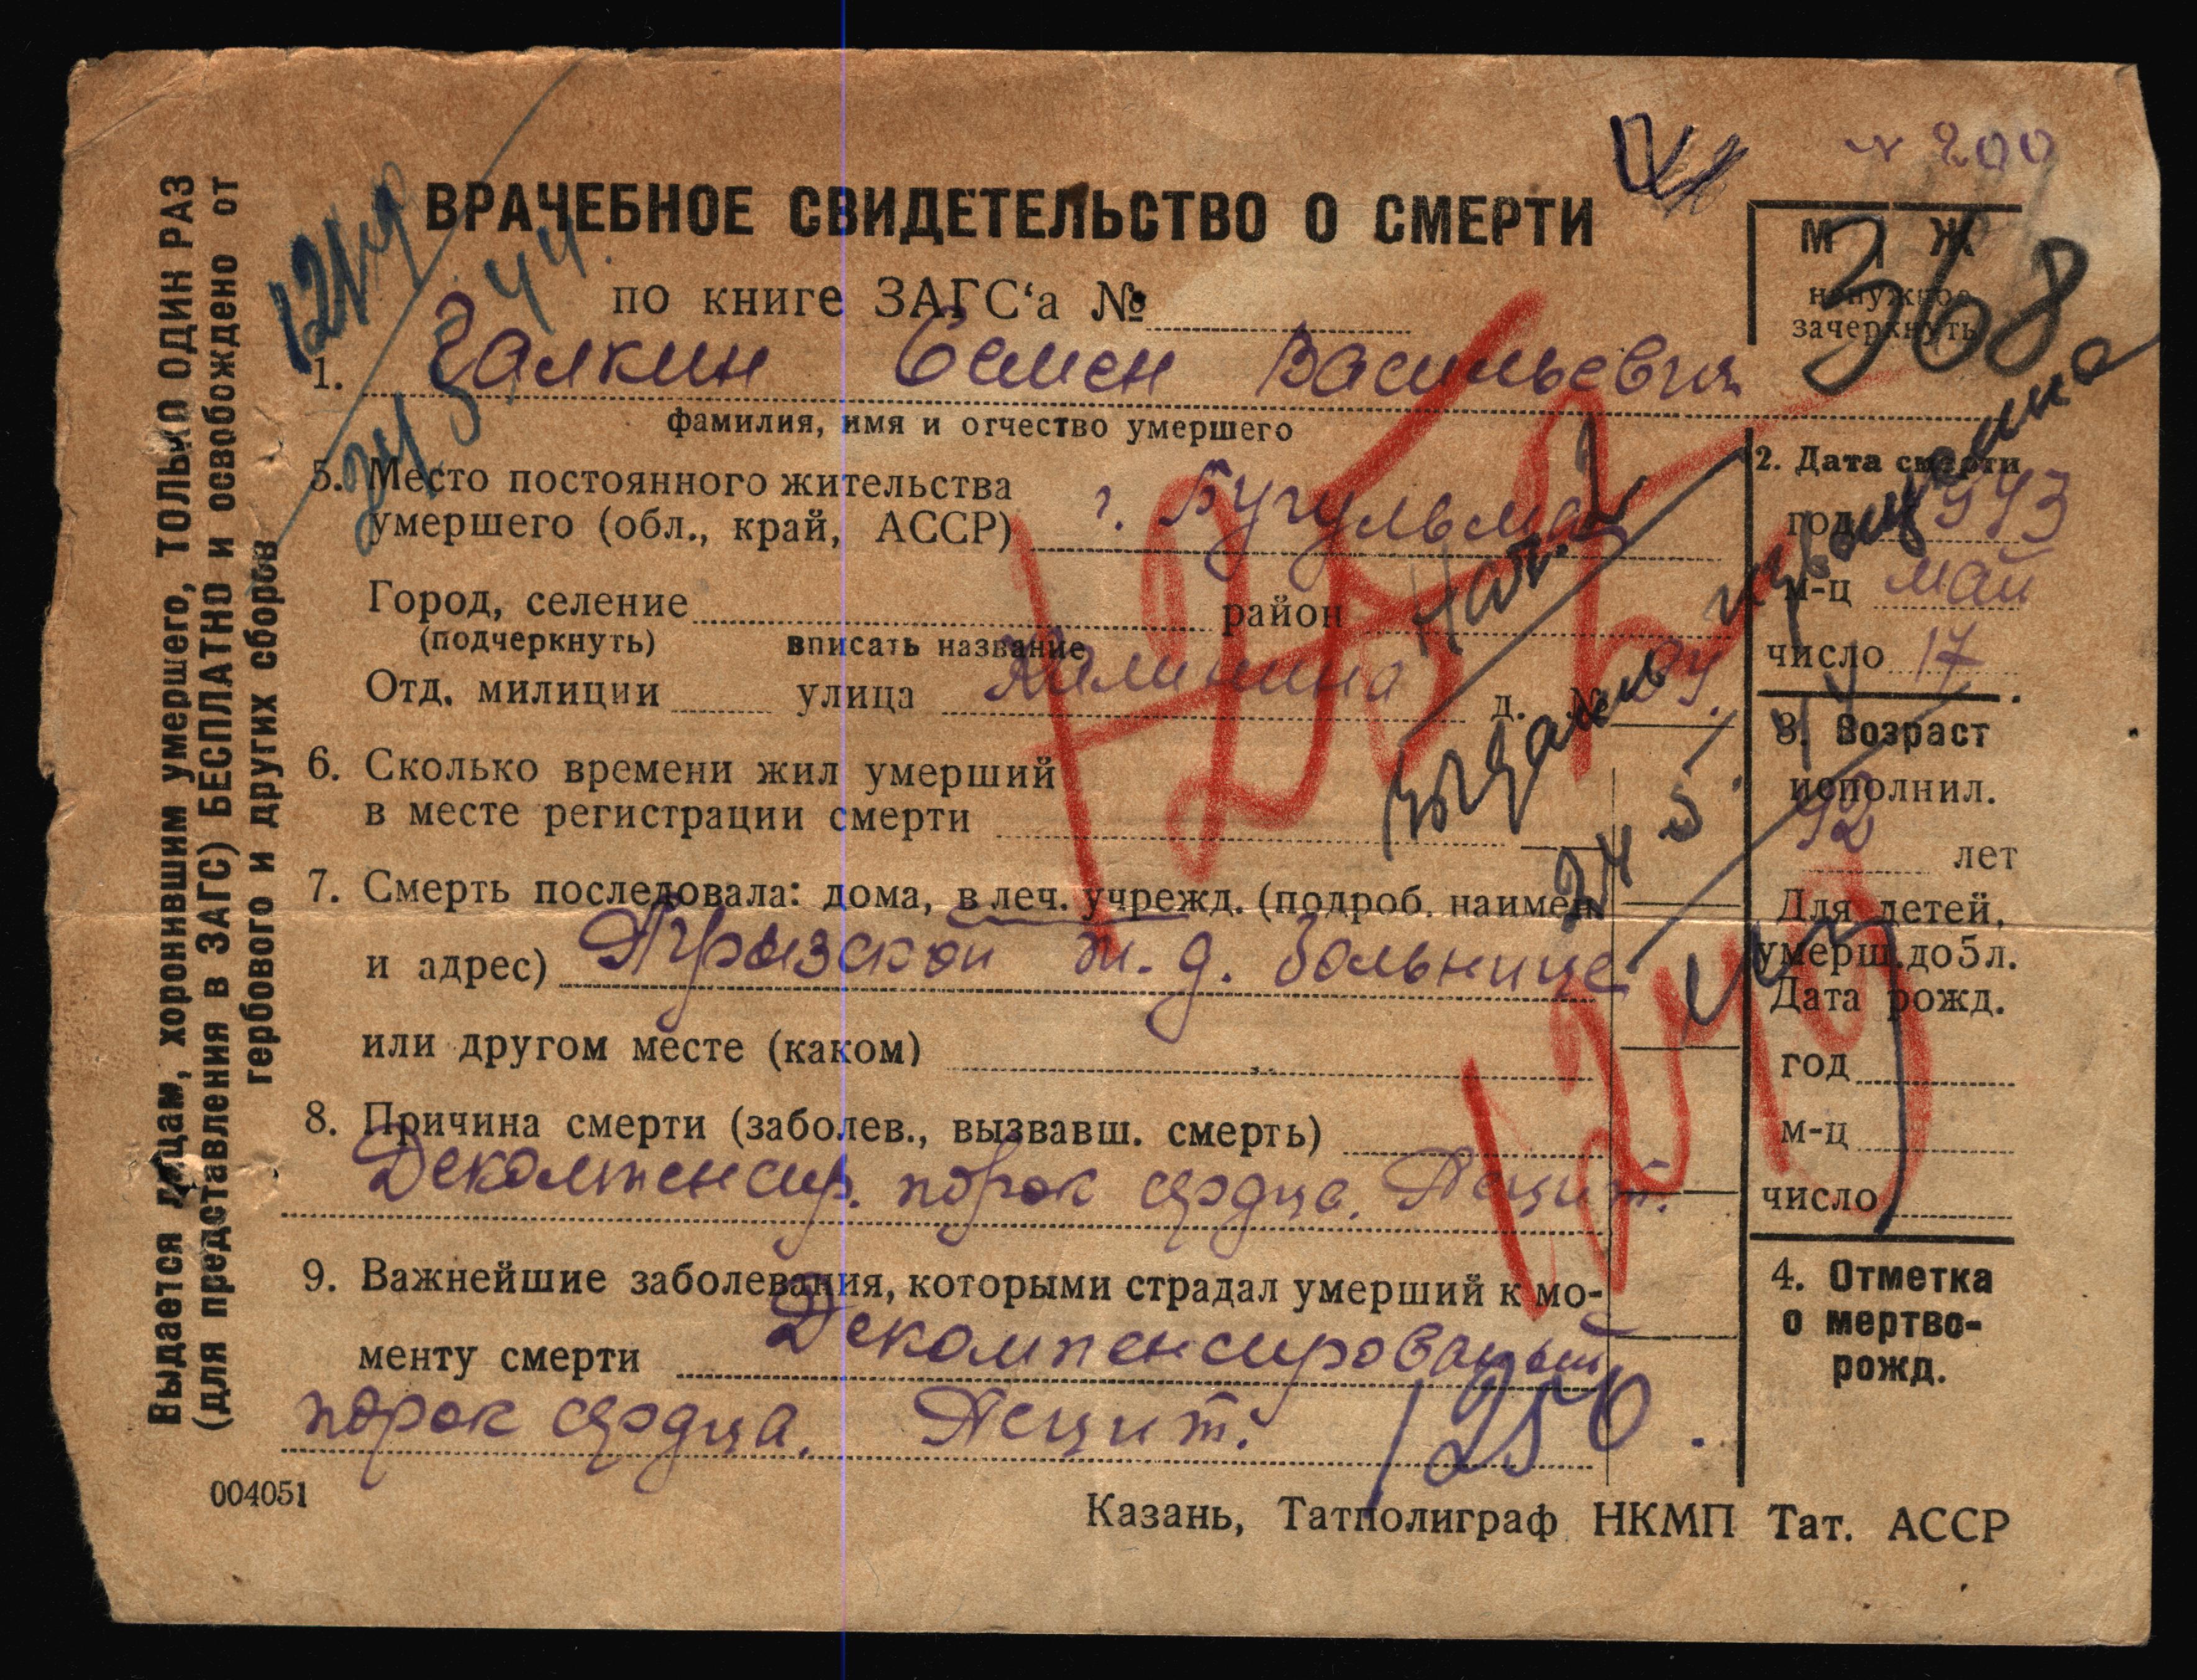 № 200
ВРАЧЕБНОЕ СВИДЕТЕЛЬСТВО О СМЕРТИ
М Ж
ненужное
зачеркнуть
368
по книге ЗАГС‘а №
1. Галкин Семен Васильевич
фамилия, имя и отчество умершего
5. Место постоянного жительства
умершего (обл., край, АССР) г. Бугульма
Город, селение район
(подчеркнуть) вписать название
Отд. милиции улица Калинина д. №
6. Сколько времени жил умерший
в месте регистрации смерти
7. Смерть последовала: дома, в леч. учрежд. (подроб. наимен.
и адрес) Агрызской ж.д. больнице
или другом месте (каком)
8. Причина смерти (заболев., вызвавш. смерть)
Декомпенсир. порок сердца. Асцит.
9. Важнейшие заболевания, которыми страдал умерший к мо-
менту смерти Декомпенсированый
порок сердца. Асцит.
2. Дата смерти
год 1943
м-ц май
число 17
3. Возраст
исполнил.
лет
Для детей,
умерш. до 5 л.
Дата рожд.
год
м-ц
число
4. Отметка
о мертво-
рожд.
1250.
24 5 44.
Выдается лицам, хоронившим умершего, ТОЛЬКО ОДИН РАЗ
(для представления в ЗАГС) БЕСПЛАТНО и освобождено от
гербового и других сборов
004051
Казань, Татполиграф НКМП Тат. АССР